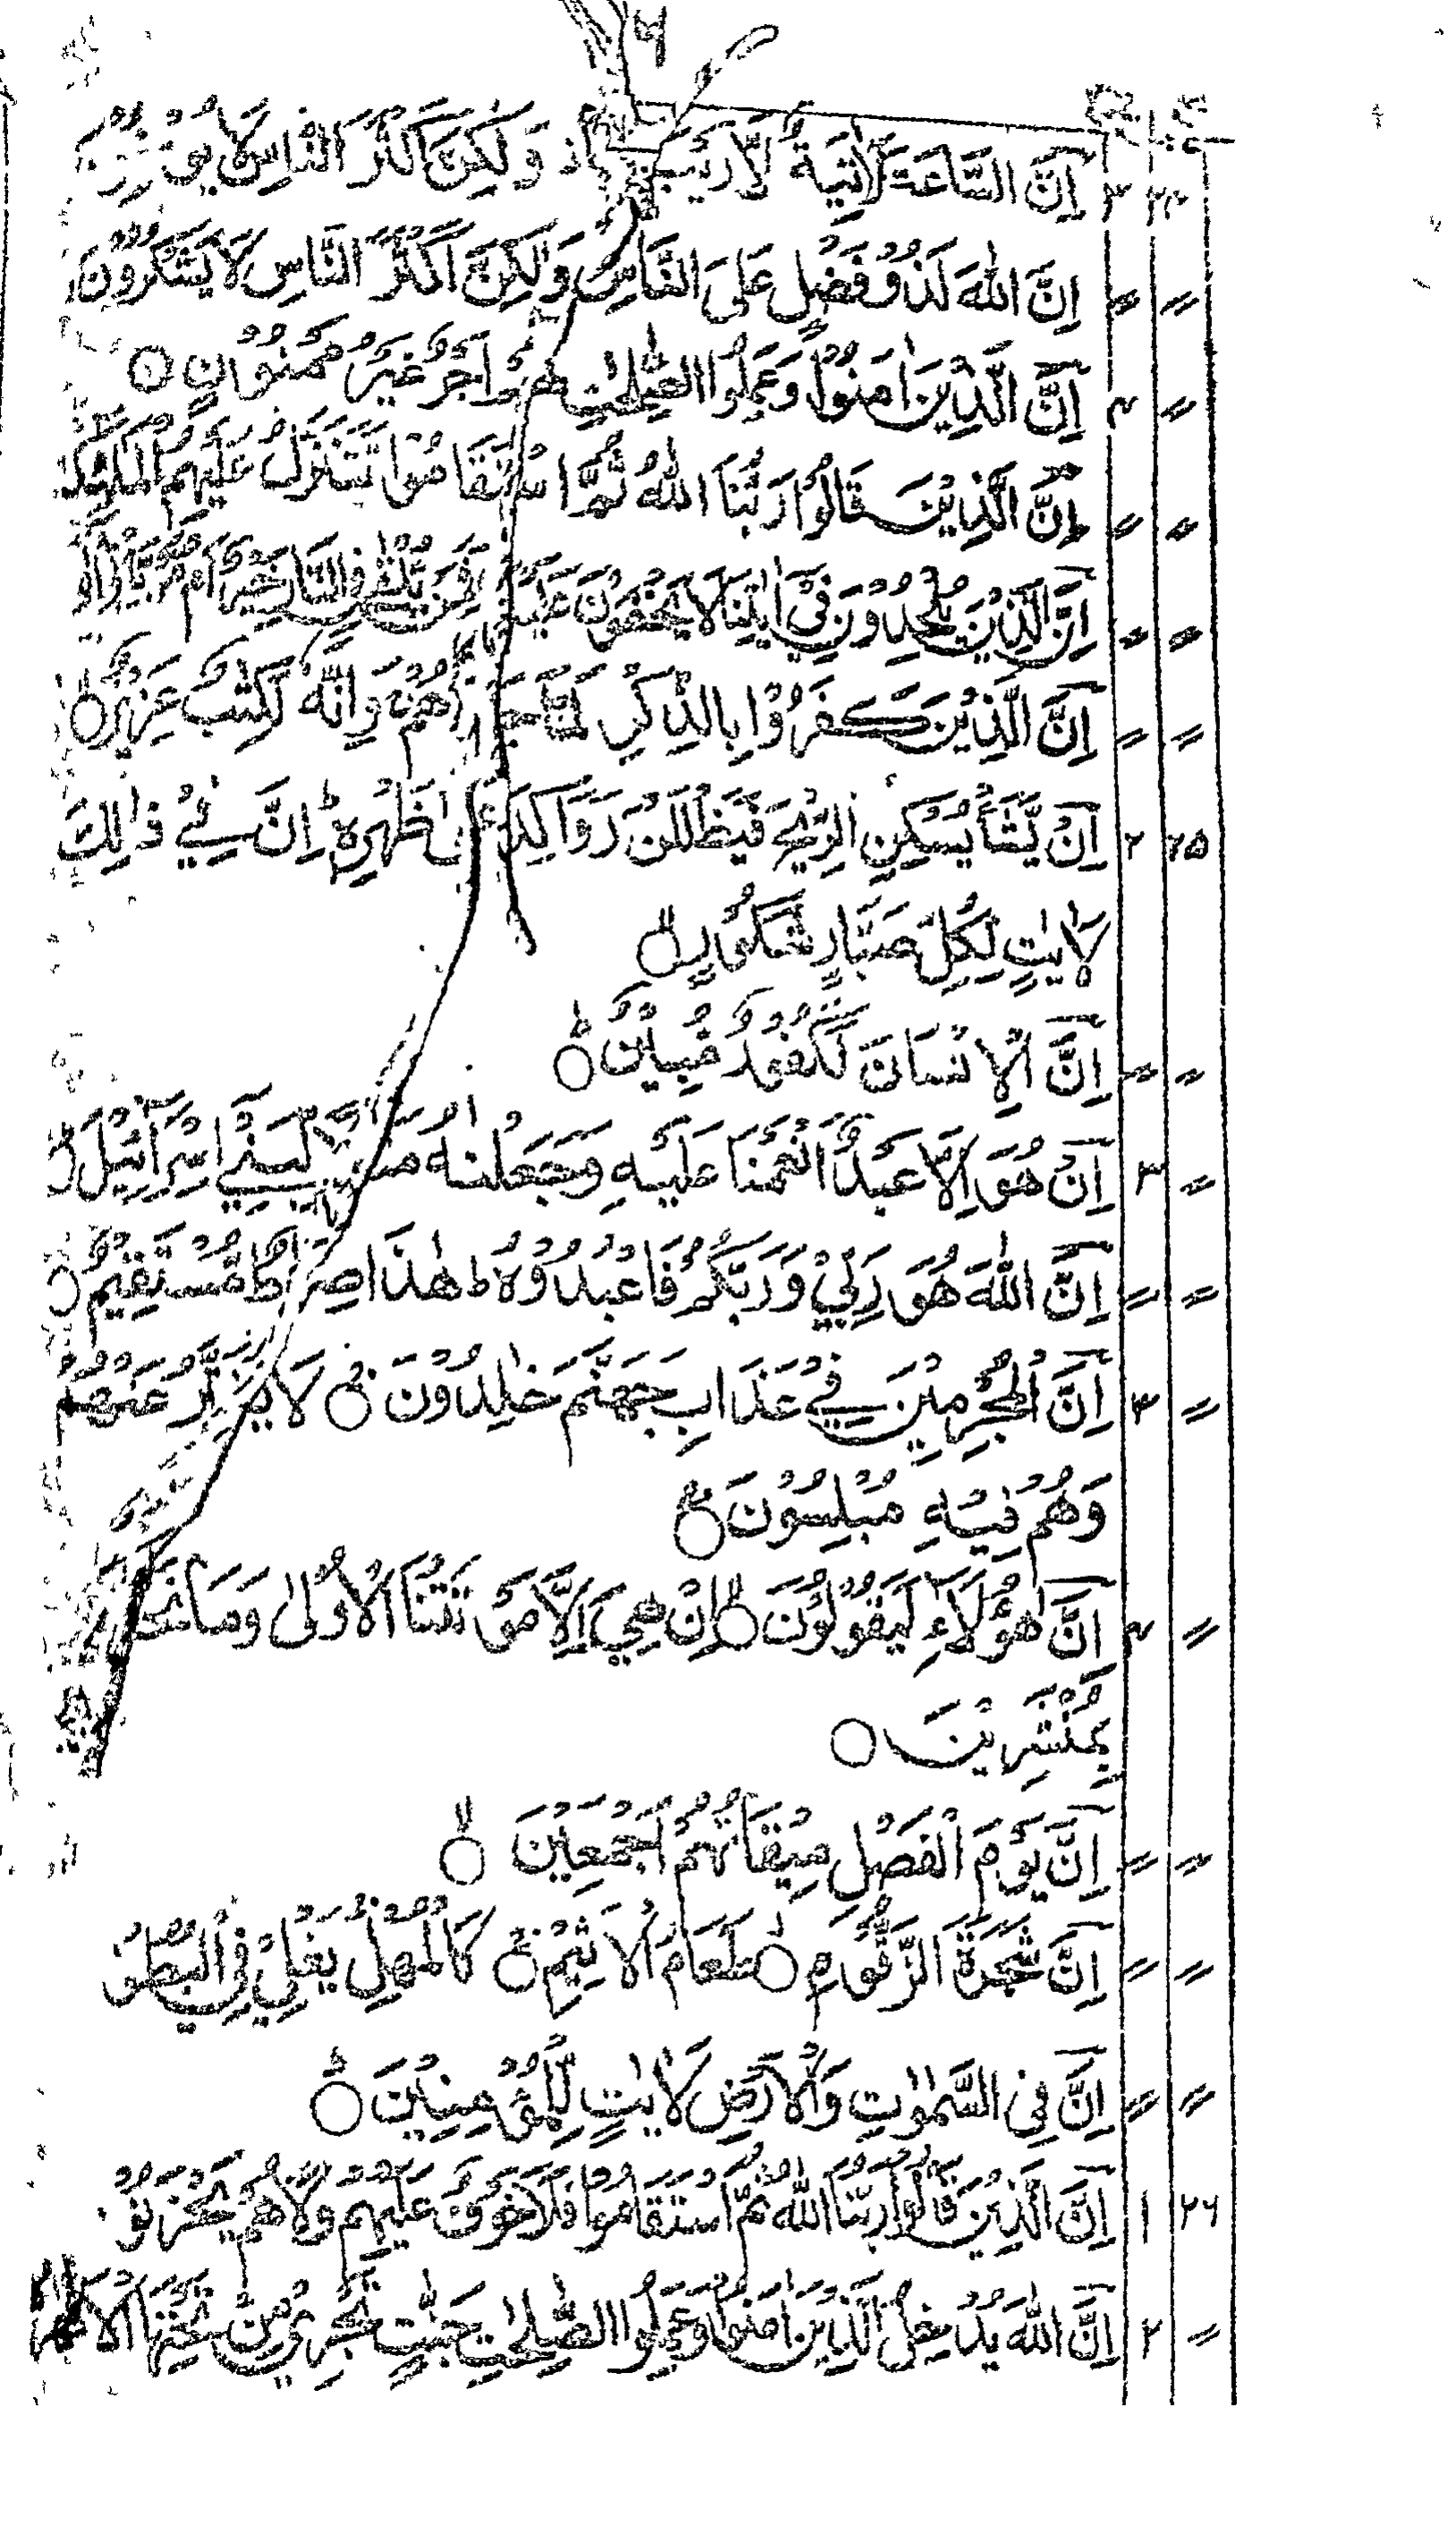 ۲۴ ۳ اِنَّ السَّاعَةَ لَاٰتِيَةٌ لَّا رَيْبَ وَلٰكِنَّ اَكْثَرَ النَّاسِ لَا
〃 〃 اِنَّ اللّٰهَ لَذُوْ فَضْلٍ عَلَى النَّاسِ وَلٰكِنَّ اَكْثَرَ النَّاسِ لَا يَشْكُرُوْنَ
〃 ۴ اِنَّ الَّذِيْنَ اٰمَنُوْا وَعَمِلُوا الصّٰلِحٰتِ لَهُمْ اَجْرٌ غَيْرُ مَمْنُوْنٍ ○
〃 〃 اِنَّ الَّذِيْنَ قَالُوْا رَبُّنَا اللّٰهُ ثُمَّ اسْتَقَامُوْا تَتَنَزَّلُ عَلَيْهِمُ
〃 〃 اِنَّ الَّذِيْنَ يُلْحِدُوْنَ فِيْٓ اٰيٰتِنَا لَا يَخْفَوْنَ عَلَيْنَا اَفَمَنْ يُّلْقٰى فِى النَّارِ خَيْرٌ اَمْ
〃 〃 اِنَّ الَّذِيْنَ كَفَرُوْا بِالذِّكْرِ لَمَّا جَآءَهُمْ وَاِنَّهٗ لَكِتٰبٌ عَزِيْزٌ ○
۲۵ ۴ اِنْ يَّشَاْ يُسْكِنِ الرِّيْحَ فَيَظْلَلْنَ رَوَاكِدَ عَلٰى ظَهْرِهٖ ؕ اِنَّ فِيْ ذٰلِكَ
لَاٰيٰتٍ لِّكُلِّ صَبَّارٍ شَكُوْرٍ ○
〃 〃 اِنَّ الْاِنْسَانَ لَكَفُوْرٌ مُّبِيْنٌ ○
〃 ۳ اِنْ هُوَ اِلَّا عَبْدٌ اَنْعَمْنَا عَلَيْهِ وَجَعَلْنٰهُ مَثَلًا لِّبَنِيْٓ اِسْرَآءِيْلَ ○
〃 〃 اِنَّ اللّٰهَ هُوَ رَبِّيْ وَرَبُّكُمْ فَاعْبُدُوْهُ ؕ هٰذَا صِرَاطٌ مُّسْتَقِيْمٌ ○
〃 ۳ اِنَّ الْمُجْرِمِيْنَ فِيْ عَذَابِ جَهَنَّمَ خٰلِدُوْنَ ○ لَا يُفَتَّرُ عَنْهُمْ
وَهُمْ فِيْهِ مُبْلِسُوْنَ ○
〃 ۴ اِنَّ هٰٓؤُلَآءِ لَيَقُوْلُوْنَ ○ اِنْ هِيَ اِلَّا مَوْتَتُنَا الْاُوْلٰى وَمَا نَحْنُ
بِمُنْشَرِيْنَ ○
〃 〃 اِنَّ يَوْمَ الْفَصْلِ مِيْقَاتُهُمْ اَجْمَعِيْنَ ○
〃 〃 اِنَّ شَجَرَةَ الزَّقُّوْمِ ○ طَعَامُ الْاَثِيْمِ ○ كَالْمُهْلِ يَغْلِيْ فِى الْبُطُوْ
〃 〃 اِنَّ فِى السَّمٰوٰتِ وَالْاَرْضِ لَاٰيٰتٍ لِّلْمُؤْمِنِيْنَ ○
۲۶ ۱ اِنَّ الَّذِيْنَ قَالُوْا رَبُّنَا اللّٰهُ ثُمَّ اسْتَقَامُوْا فَلَا خَوْفٌ عَلَيْهِمْ وَلَا هُمْ يَحْزَنُوْ
〃 ۲ اِنَّ اللّٰهَ يُدْخِلُ الَّذِيْنَ اٰمَنُوْا وَعَمِلُوا الصّٰلِحٰتِ جَنّٰتٍ تَجْرِيْ مِنْ تَحْتِهَا الْاَنْهٰرُ